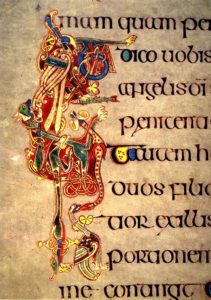 gmam quam per
dico uobis
angelis di
penitentia
autem h
duos filio
tior exillis
portionem
me contingit